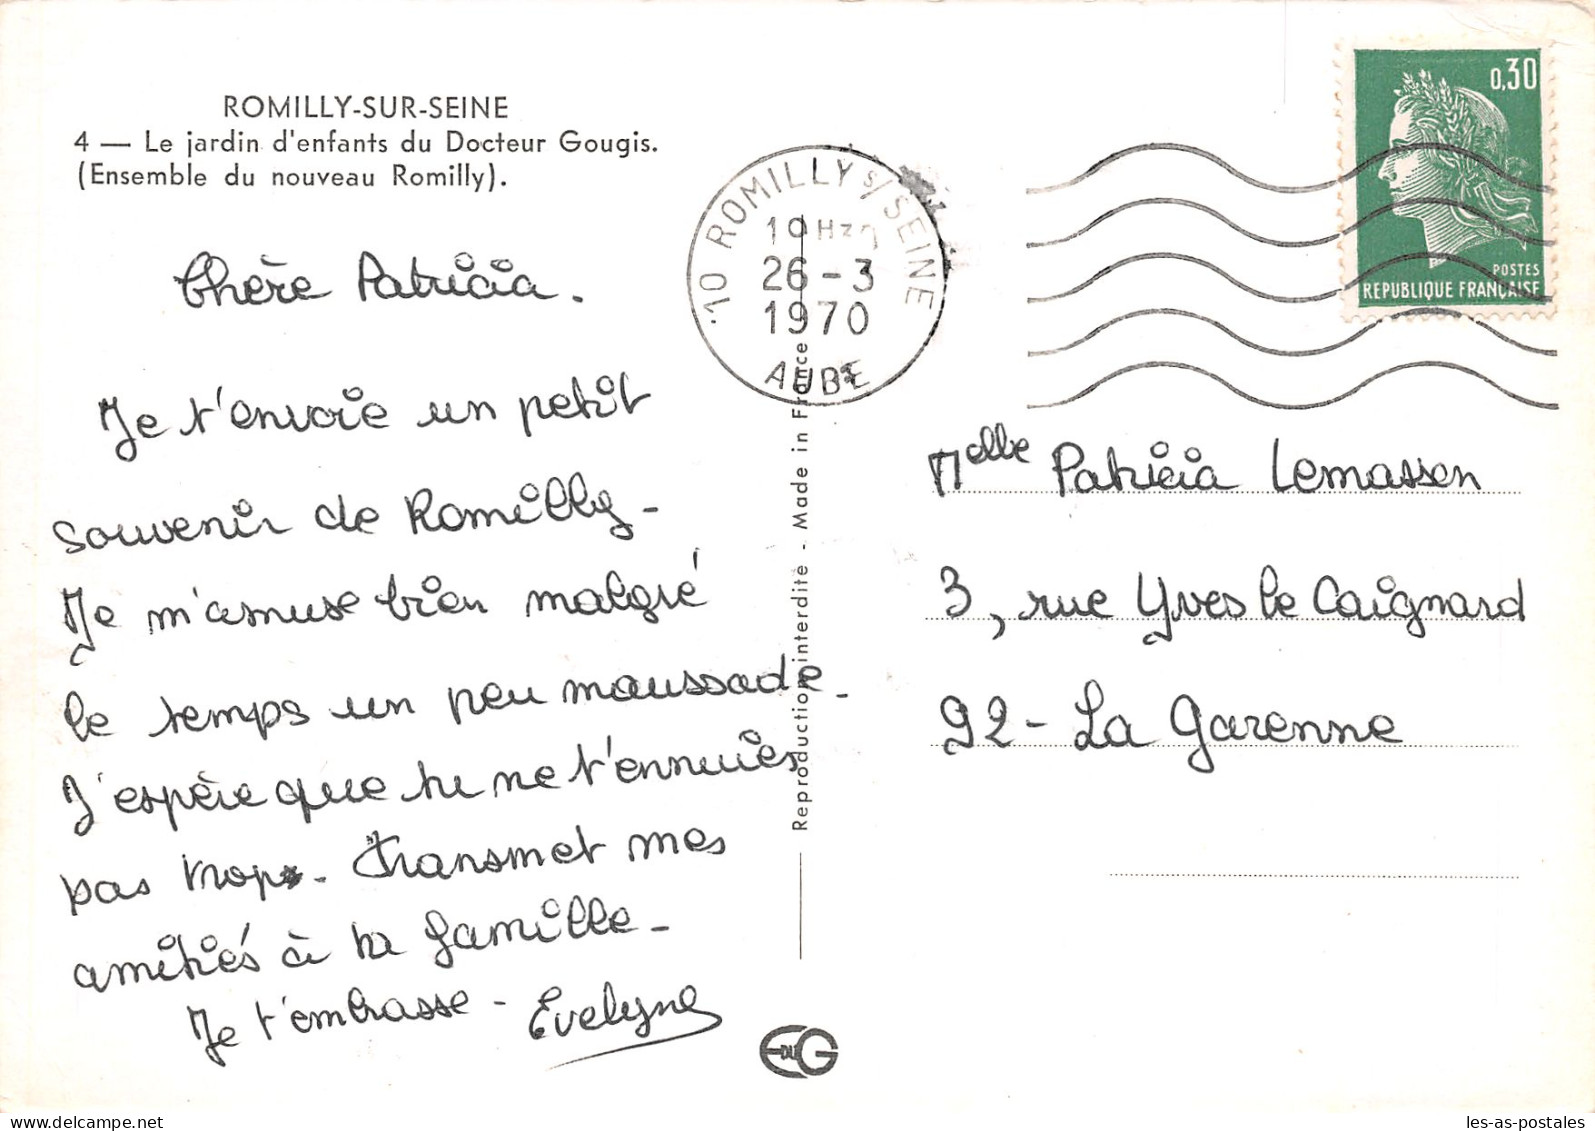 ROMILLY-SUR-SEINE
4 — Le jardin d'enfants du Docteur Gougis.
(Ensemble du nouveau Romilly).
Chère Patricia.
Je t'envoie un petit
souvenir de Romilly -
Je m'amuse bien malgré
le temps un peu maussade.
J'espère que tu ne t'ennuies
pas trop. Transmet mes
amitiés à ta famille -
Je t'embrasse - Evelyne
10 ROMILLY S/SEINE
26 - 3
1970
AUBE
Reproduction interdite - Made in France
0,30
POSTES
REPUBLIQUE FRANÇAISE
Melle Patricia Lemassen
3, rue Yves le Caignard
92 - La Garenne
E DU G
delcampe.net
les-as-postales